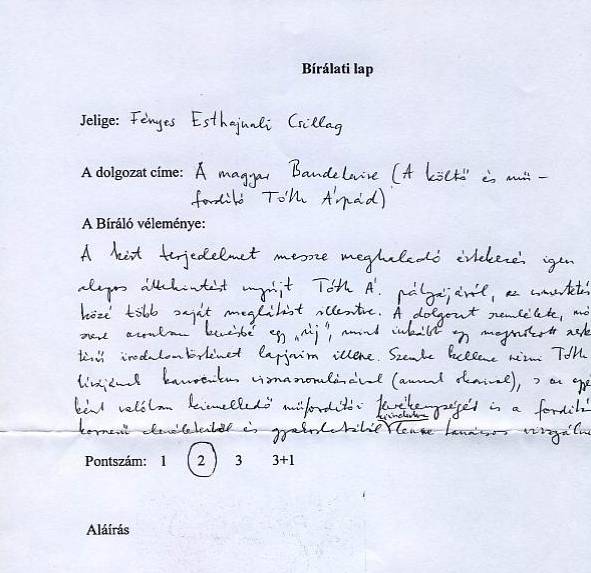 Bírálati lap
Jelige: Fényes Esthajnali Csillag
A dolgozat címe: A magyar Baudelaire (A költő és mű-
fordító Tóth Árpád)
A Bíráló véleménye:
A kért terjedelmet messze meghaladó értekezés igen
alapos áttekintést nyújt Tóth Á. pályájáról, az ismertetés
közé több saját meglátást illesztve. A dolgozat szemlélete, mó
szere azonban kevésbé egy „új”, mint inkább egy megszokott
irodalomtörténet lapjaira illene. Szembe kellene nézni Tóth
lírájának kanonikus visszaszorulásával (annak okaival), s az egyé
ként valóban kiemelkedő műfordítói tevékenységét is a fordítá
korszerű elméleteiből és gyakorlatából lenne tanácsos vizsgálni
Pontszám: 1 2 3 3+1
Aláírás